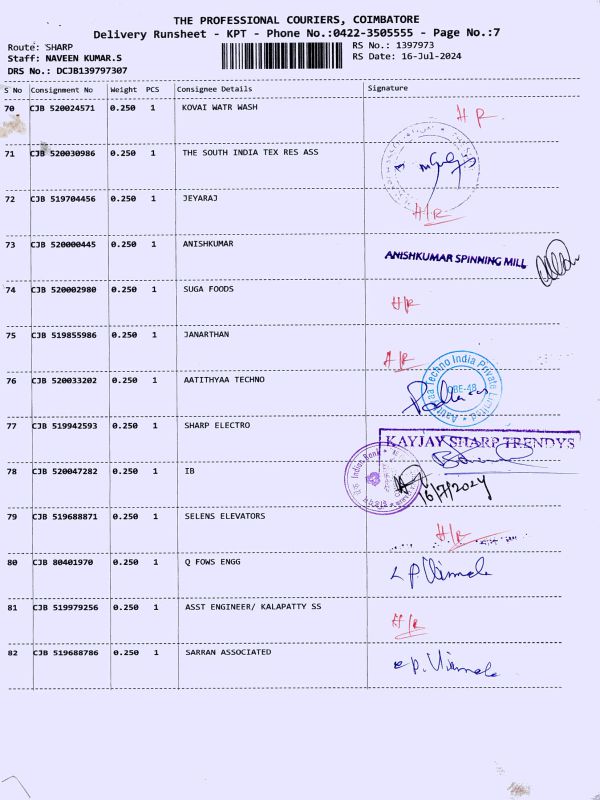 THE PROFESSIONAL COURIERS, COIMBATORE
Delivery Runsheet - KPT - Phone No.:0422-3505555 - Page No.:7
Route: SHARP
RS No.: 1397973
Staff: NAVEEN KUMAR.S
RS Date: 16-Jul-2024
DRS No.: DCJB139797307
S No Consignment No Weight PCS Consignee Details Signature
70 CJB 520024571 0.250 1 KOVAI WATR WASH H R
71 CJB 520030986 0.250 1 THE SOUTH INDIA TEX RES ASS
72 CJB 519704456 0.250 1 JEYARAJ H/R
73 CJB 520000445 0.250 1 ANISHKUMAR ANISHKUMAR SPINNING MILL
74 CJB 520002980 0.250 1 SUGA FOODS H/R
75 CJB 519855986 0.250 1 JANARTHAN H/R
76 CJB 520033202 0.250 1 AATITHYAA TECHNO Techno India Private Limited
77 CJB 519942593 0.250 1 SHARP ELECTRO KAYJAY SHARP TRENDYS
78 CJB 520047282 0.250 1 IB Indian Bank 16/7/2024
79 CJB 519688871 0.250 1 SELENS ELEVATORS H/R
80 CJB 80401970 0.250 1 Q FOWS ENGG P. Vimala
81 CJB 519979256 0.250 1 ASST ENGINEER/ KALAPATTY SS H/R
82 CJB 519688786 0.250 1 SARRAN ASSOCIATED P. Vimala